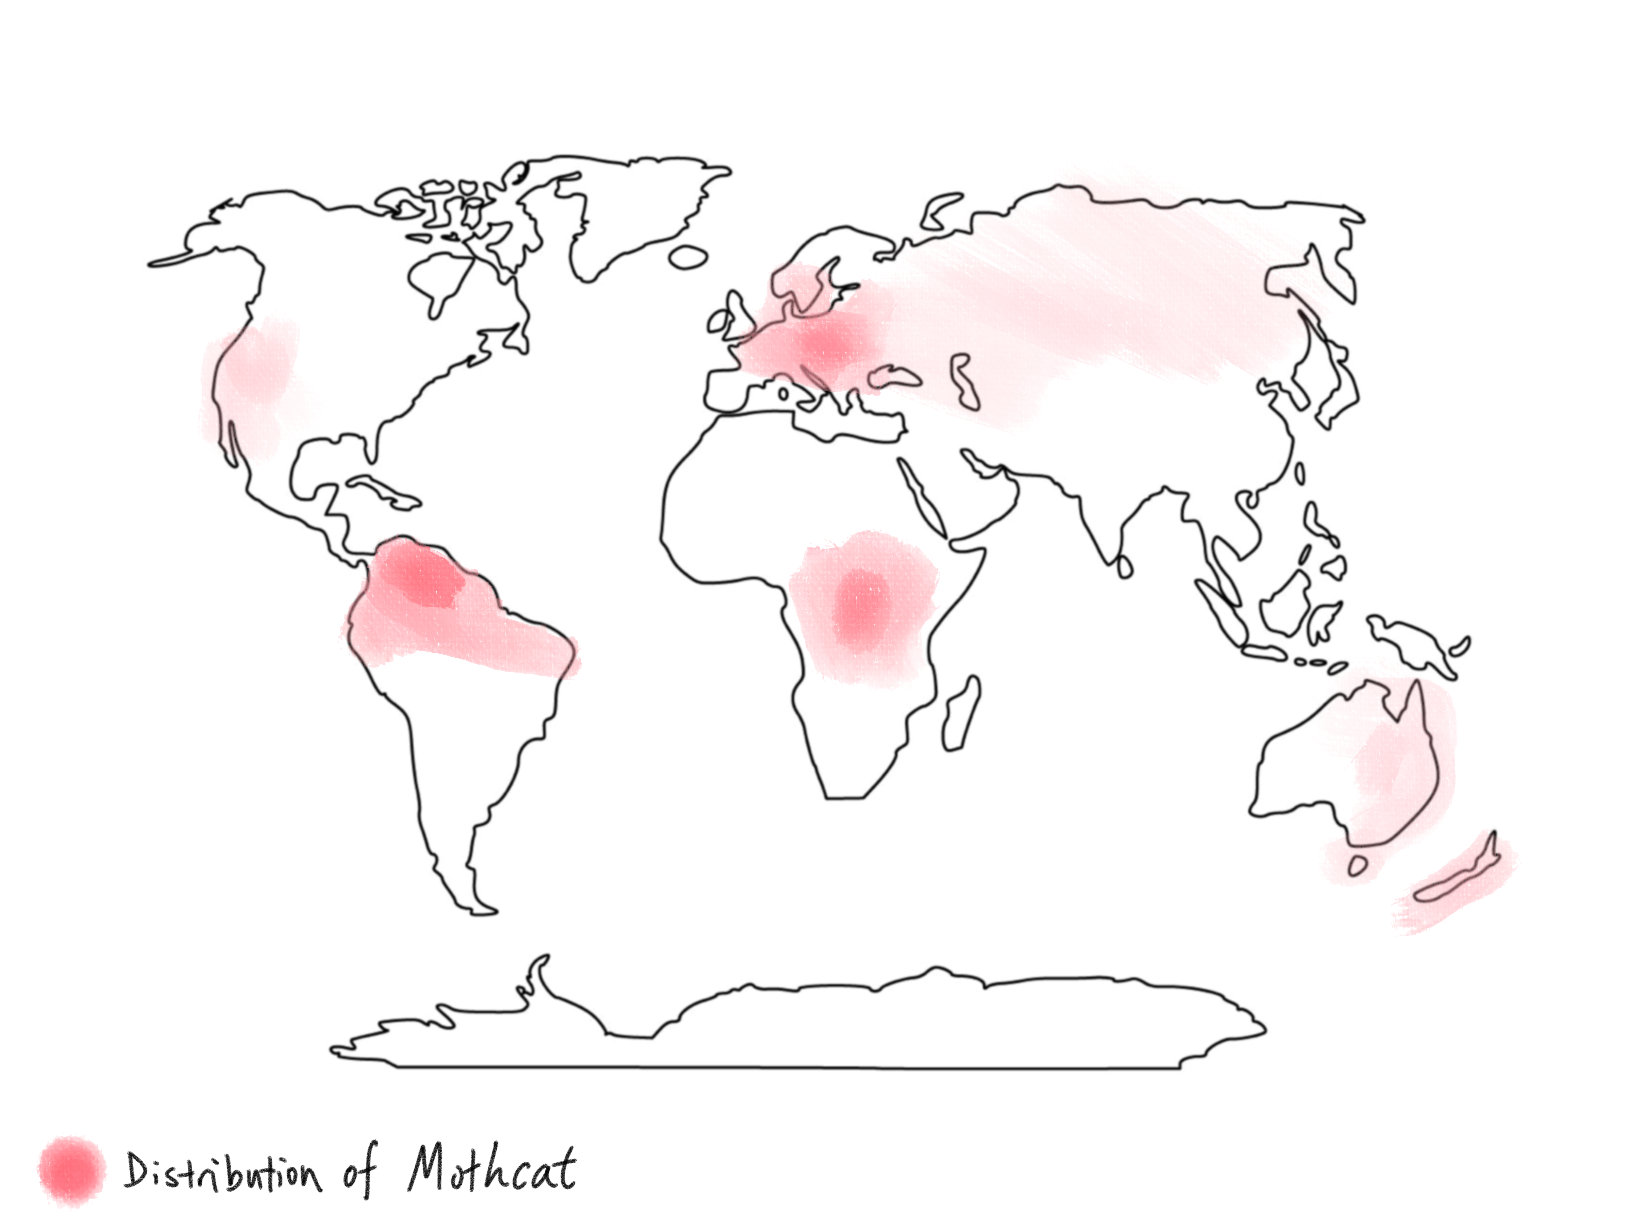 Distribution of Mothcat